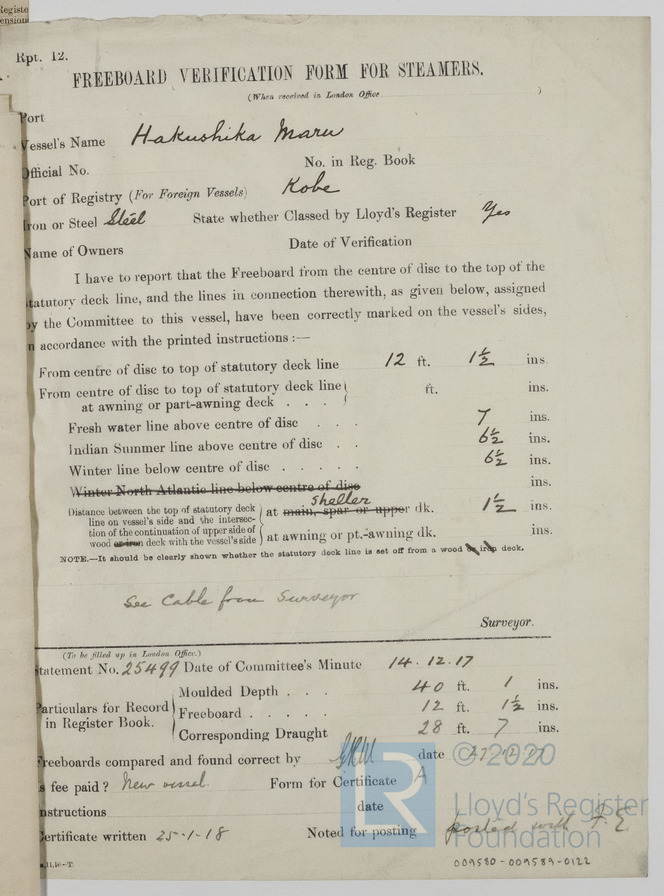 Registe
ension
Rpt. 12.
FREEBOARD VERIFICATION FORM FOR STEAMERS.
(When received in London Office )
Port
Vessel's Name Hakushika Maru
Official No. No. in Reg. Book
Port of Registry (For Foreign Vessels) Kobe
Iron or Steel Steel State whether Classed by Lloyd's Register Yes
Name of Owners Date of Verification
I have to report that the Freeboard from the centre of disc to the top of the
statutory deck line, and the lines in connection therewith, as given below, assigned
by the Committee to this vessel, have been correctly marked on the vessel's sides,
in accordance with the printed instructions :—
From centre of disc to top of statutory deck line 12 ft. 1½ ins.
From centre of disc to top of statutory deck line ft. ins.
at awning or part-awning deck . . .
Fresh water line above centre of disc . . . 7 ins.
Indian Summer line above centre of disc . . 6½ ins.
Winter line below centre of disc . . . . . 6½ ins.
Winter North Atlantic line below centre of disc ins.
shelter
Distance between the top of statutory deck
line on vessel's side and the intersec- at main, spar or upper dk. 1½ ins.
tion of the continuation of upper side of
wood or iron deck with the vessel's side at awning or pt.-awning dk. ins.
NOTE.—It should be clearly shown whether the statutory deck line is set off from a wood or iron deck.
See Cable from Surveyor
Surveyor.
(To be filled up in London Office.)
Statement No. 25499 Date of Committee's Minute 14.12.17
Moulded Depth . . . 40 ft. 1 ins.
Particulars for Record Freeboard . . . . . 12 ft. 1½ ins.
in Register Book.
Corresponding Draught 28 ft. 7 ins.
Freeboards compared and found correct by date
Is fee paid? New vessel. Form for Certificate A
Instructions date
Certificate written 25-1-18 Noted for posting posted with F.E.
© 2020
Lloyd's Register
Foundation
009580-009589-0122